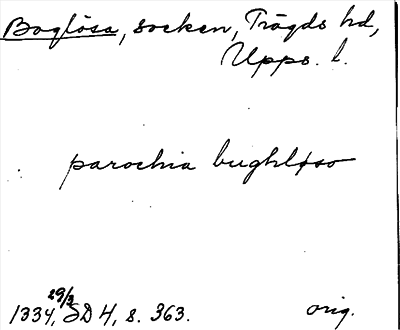 Boglösa, socken, Trögds hd,
Upps. l.
parochia bughløso
1334, 29/3 SD 4, s. 363. orig.